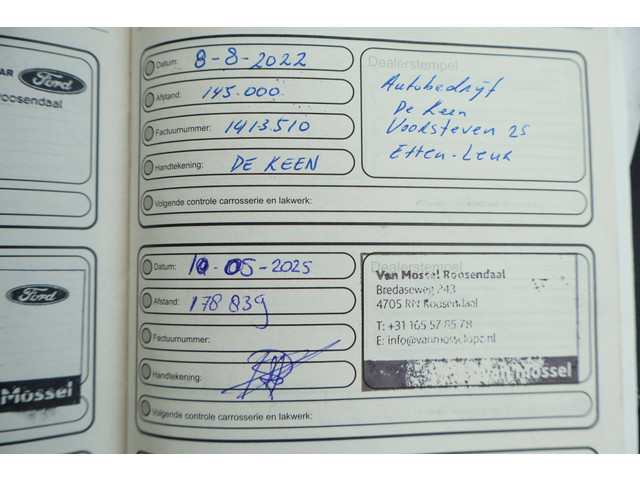 AR Ford
Roosendaal
Ford
Mossel
Datum: 8-8-2022
Afstand: 145.000
Factuurnummer: 1413510
Handtekening: DE KEEN
Volgende controle carrosserie en lakwerk:
Dealerstempel
Autobedrijf
De Keen
Voorsteven 25
Etten-Leur
Datum: 10-05-2025
Afstand: 178 839
Factuurnummer:
Handtekening:
Volgende controle carrosserie en lakwerk:
Dealerstempel
Van Mossel Roosendaal
Bredaseweg 243
4705 RN Roosendaal
T: +31 165 57 85 78
Van Mossel